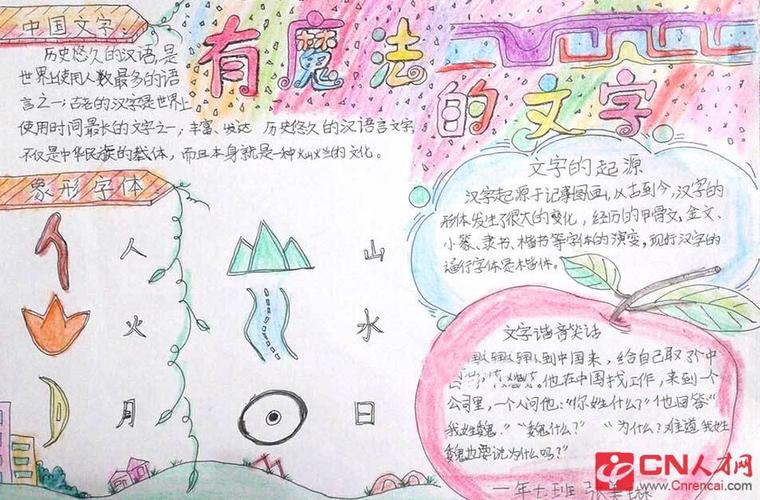 中国文字:
历史悠久的汉语,是
世界上使用人数最多的语
言之一;古老的汉字是世界上
使用时间最长的文字之一;丰富、发达 历史悠久的汉语言文字
不仅是中华民族的载体,而且本身就是一种灿烂的文化。
有魔法
的文字
象形字体:
人
山
火
水
月
日
文字的起源
汉字起源于记事图画,从古到今,汉字的
形体发生了很大的变化,经历的甲骨文,金文、
小篆、隶书、楷书等字体的演变,现行汉字的
通行字体是楷体。
文字谐音笑话
到中国来,给自己取了个中
他在中国找工作,来到一个
公司里,一个人问他:“你姓什么?”他回答“
我姓魏.”“魏什么?”“为什么?难道我姓
魏也要说为什么吗?”
一年七班 张
CN人才网
Cnrencai.com